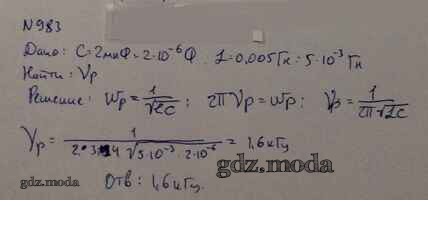 N983
Дано: C=2мкФ=2·10⁻⁶Ф. L=0,005Гн=5·10⁻³Гн
Найти: νp
Решение: ωp=1/√LC; 2πνp=ωp; νp=1/2π√LC
νp=1/2·3,14√5·10⁻³·2·10⁻⁶=1,6кГц
gdz.moda
Отв: 1,6кГц.
gdz.moda